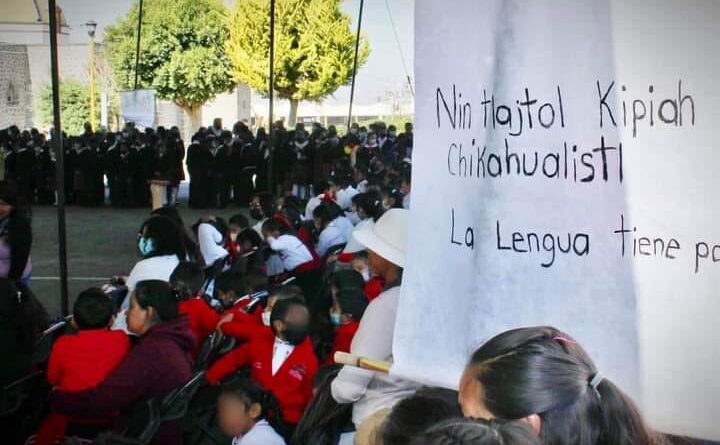 Nin tlajtol Kipiah
Chikahualistl
La Lengua tiene